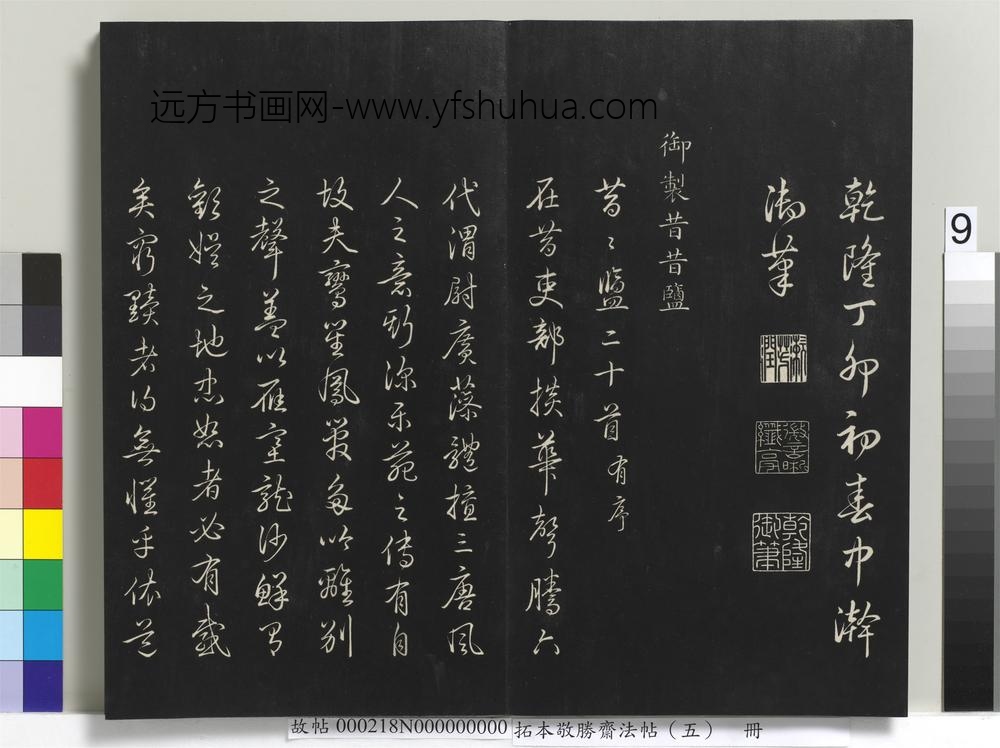 远方书画网-www.yfshuhua.com
乾隆丁卯初春中澣
御筆
漱芳潤
乾隆御筆
御製昔昔鹽
昔〻鹽二十首有序
在昔吏部掞華聲騰六
代渭尉廣藻體擅三唐風
人之意斯深樂苑之傳有自
故夫鸞笙鳳管多吟離別
之聲蓋以雁塞龍沙鮮
歡娛之地忠恕者必有感
矣窮黷者得無懼乎依
9
故帖 000218N000000000 拓本敬勝齋法帖（五） 冊